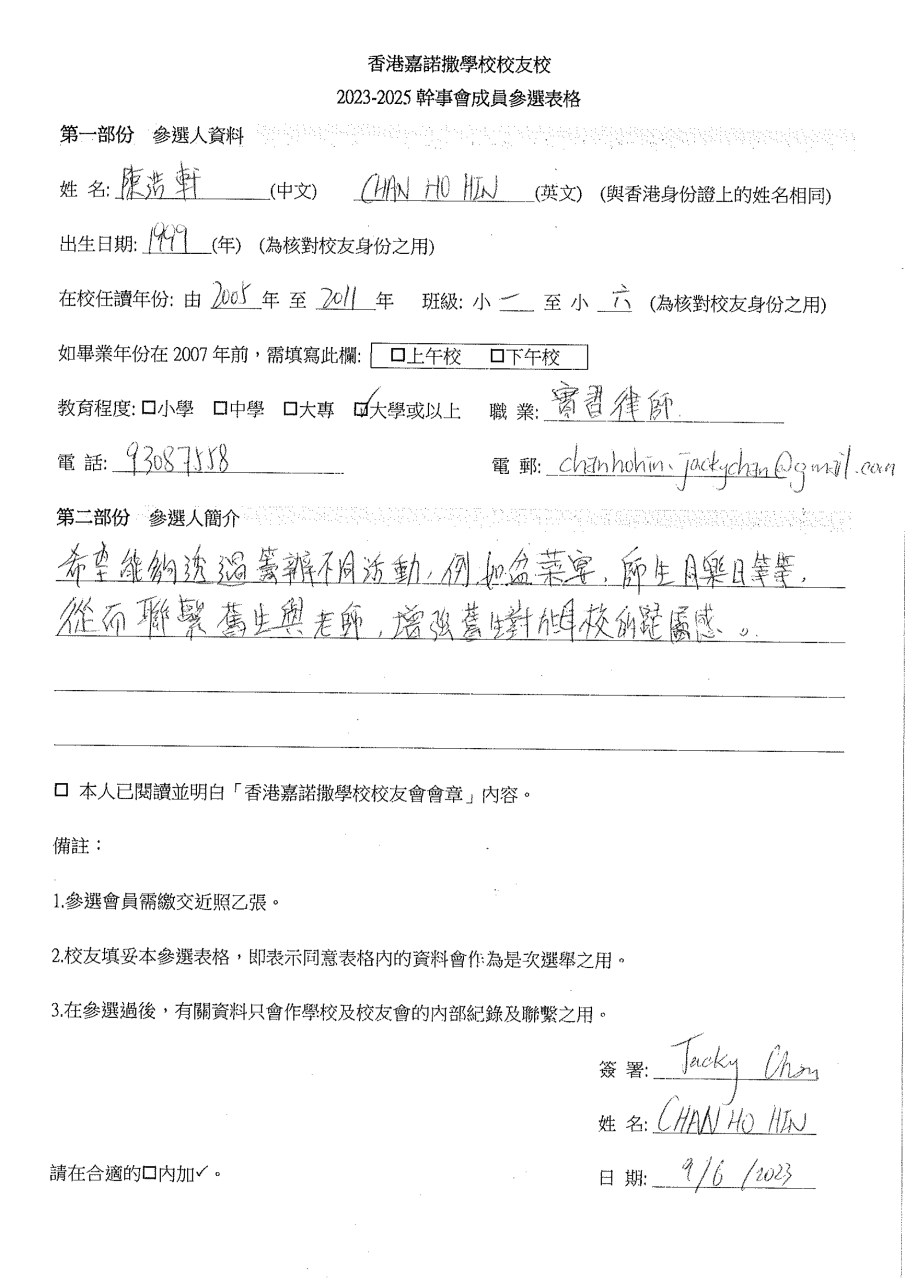 香港嘉諾撒學校校友校
2023-2025 幹事會成員參選表格
第一部份 參選人資料
姓 名: 陳浩軒 (中文) CHAN HO HIN (英文) (與香港身份證上的姓名相同)
出生日期: 1999 (年) (為核對校友身份之用)
在校任讀年份: 由 2005 年 至 2011 年 班級: 小 一 至 小 六 (為核對校友身份之用)
如畢業年份在 2007 年前，需填寫此欄: □上午校 □下午校
教育程度: □小學 □中學 □大專 ☑大學或以上 職 業: 實習律師
電 話: 93087558 電 郵: chanhohin.jackychan@gmail.com
第二部份 參選人簡介
希望能夠透過籌辦不同活動，例如盆菜宴，師生同樂日等等，
從而聯繫舊生與老師，增強舊生對母校的歸屬感。
□ 本人已閱讀並明白「香港嘉諾撒學校校友會會章」內容。
備註：
1.參選會員需繳交近照乙張。
2.校友填妥本參選表格，即表示同意表格內的資料會作為是次選舉之用。
3.在參選過後，有關資料只會作學校及校友會的內部紀錄及聯繫之用。
簽 署: Jacky Chan
姓 名: CHAN HO HIN
請在合適的□內加✓。 日 期: 9/6/2023